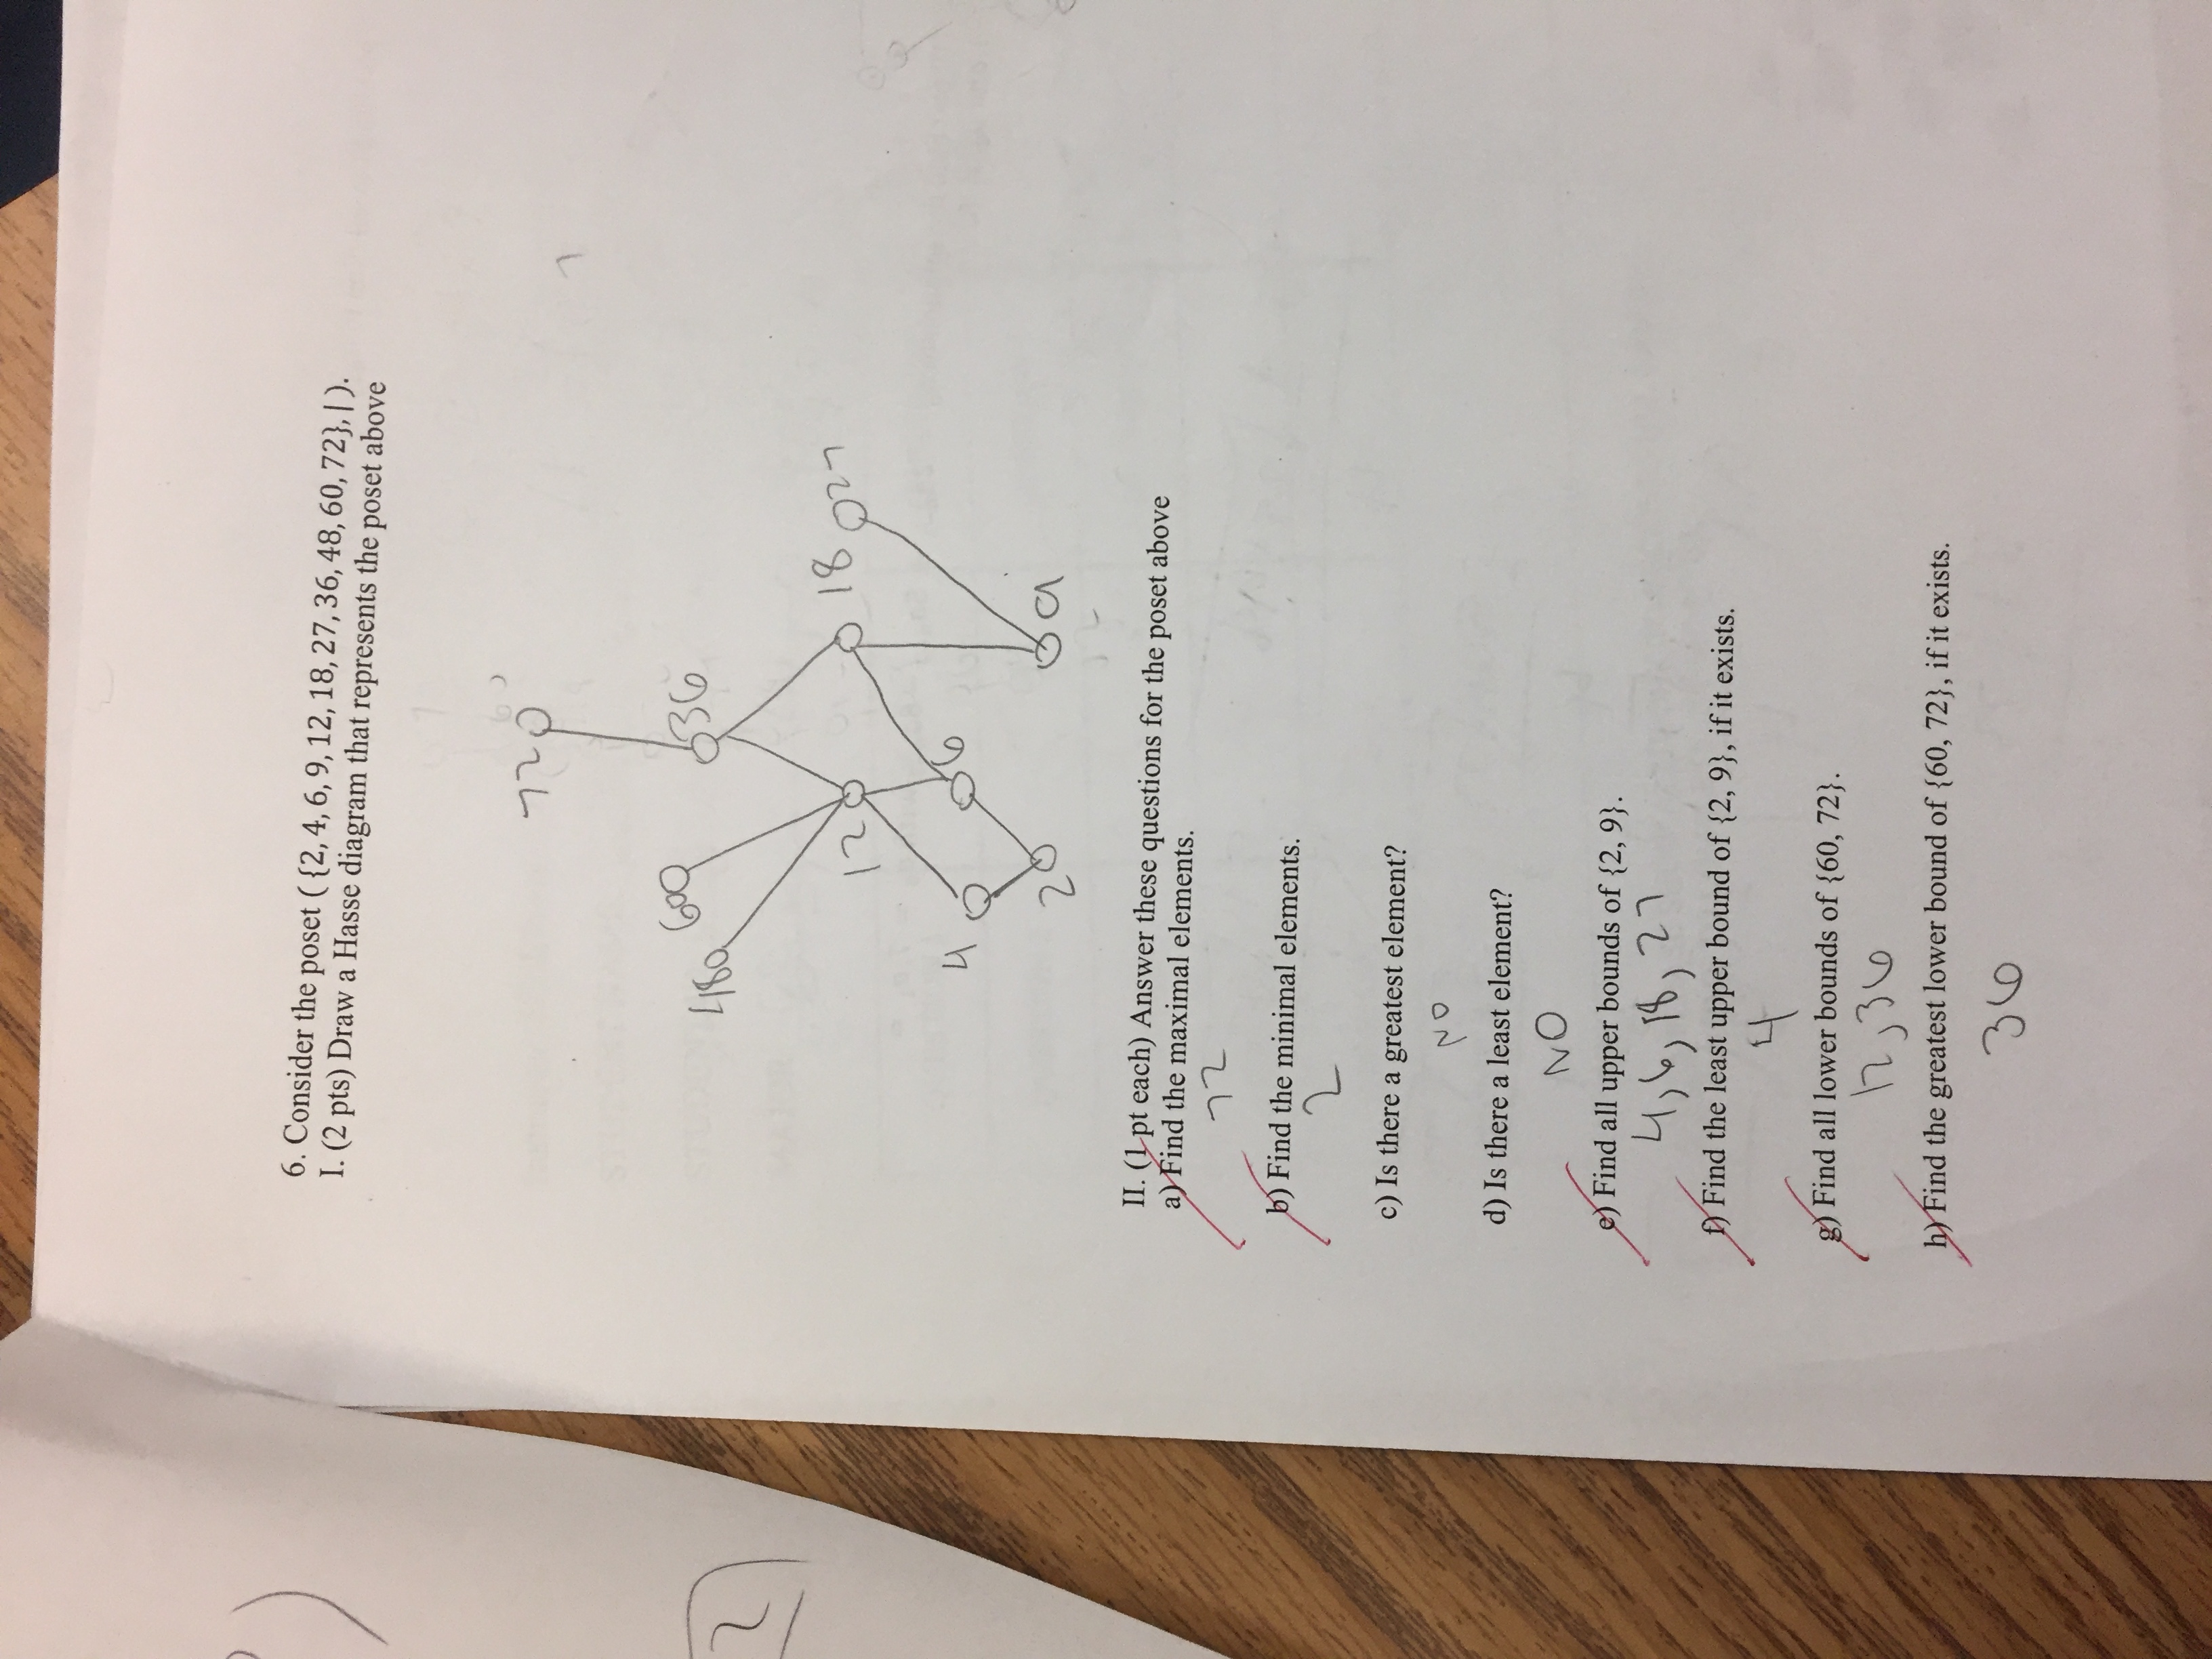 6. Consider the poset ( {2, 4, 6, 9, 12, 18, 27, 36, 48, 60, 72}, | ).
I. (2 pts) Draw a Hasse diagram that represents the poset above
72
60
36
48
12
18
27
4
6
2
9
II. (1 pt each) Answer these questions for the poset above
a) Find the maximal elements.
72
b) Find the minimal elements.
2
c) Is there a greatest element?
NO
d) Is there a least element?
NO
e) Find all upper bounds of {2, 9}.
4, 6, 18, 27
f) Find the least upper bound of {2, 9}, if it exists.
4
g) Find all lower bounds of {60, 72}.
12, 36
h) Find the greatest lower bound of {60, 72}, if it exists.
36
2